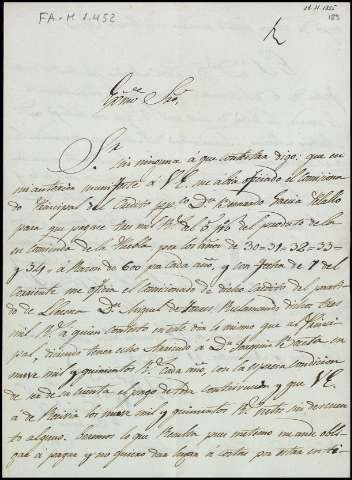 FA-M 1.452
18-11-1835
189
Exmo. Sor.
Sin ninguna á que contestar digo: que en
mi anterior manifesté á V.E. me abia oficiado el Comisiona
do Principal del Credito ppco. Dn. Bernardo Garcia
para que pague tres mil Rs. del 6 p% del producto de la
encomienda de la Puebla por los años de 30=31=32=33=
y 34=à Razon de 600 pa. cada año, y con fecha de 7 del
corriente me oficia el comisionado de dicho Credito del parti
do de Llerena Dn. Miguel de Reclamando dichos tres
mil Rs. a quien contesto en este dia lo mismo que al Princi
pal, diciendo tener echo Arriendo á Dn. Joaquin en
nueve mil y quinientos Rs. cada año, con la espresa condicion
de ser de su cuenta el pago de toda contribucion y que V.E.
á de Recivir los nueve mil y quinientos Rs. netos sin descuen
to alguno. Beremos lo que Resulta pues me temo me ande obli
gar á pagar y no quiero dar lugar á costas por estar